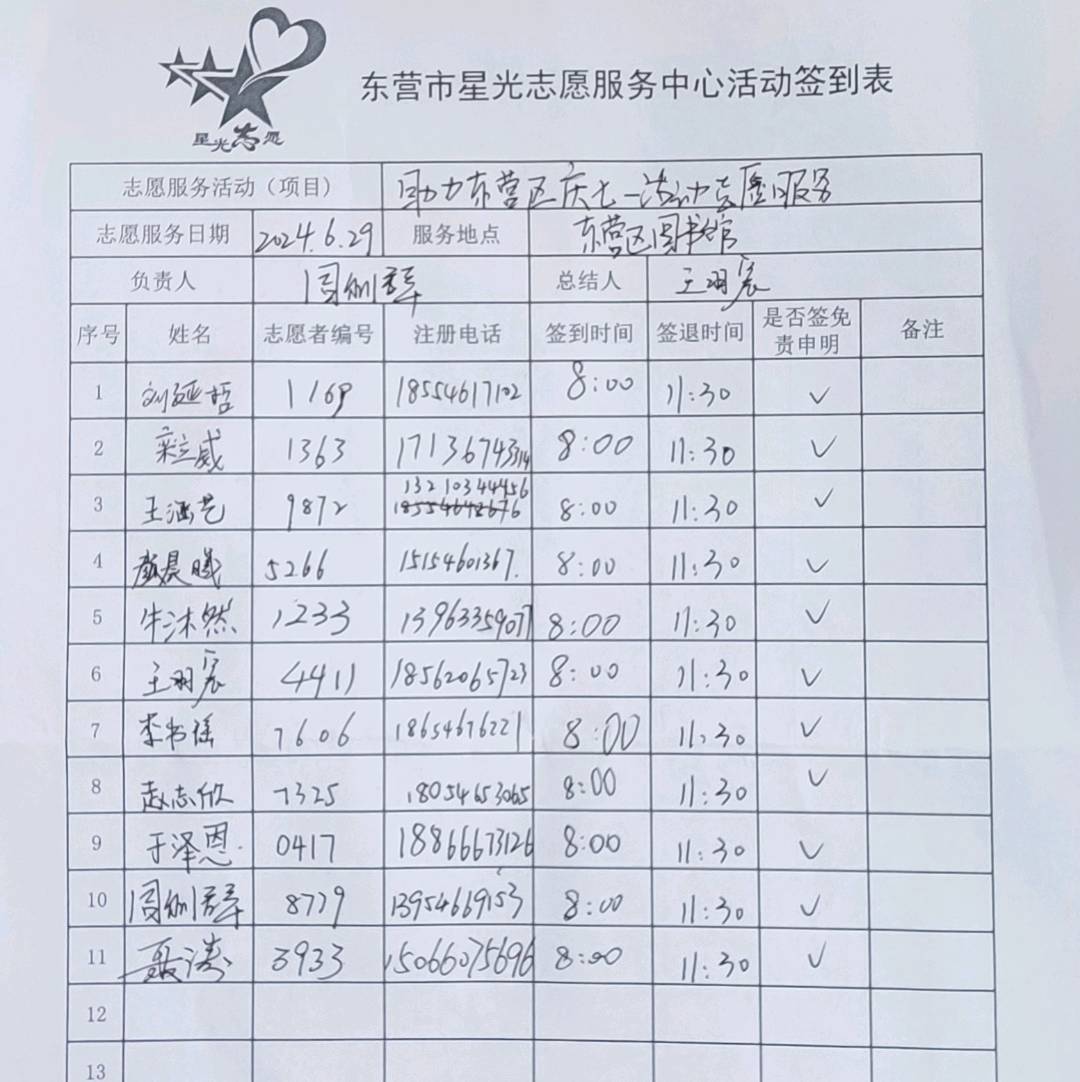 星光志愿
东营市星光志愿服务中心活动签到表
志愿服务活动（项目） 助力东营区庆七一活动志愿服务
志愿服务日期 2024.6.29 服务地点 东营区图书馆
负责人 周训群 总结人 王羽宸
序号 姓名 志愿者编号 注册电话 签到时间 签退时间 是否签免责申明 备注
1 刘延哲 1169 18554617102 8:00 11:30 ✓
2 栾立威 1363 17136743314 8:00 11:30 ✓
3 王涵艺 9872 13210344456 18554648676 8:00 11:30 ✓
4 颜晨曦 5266 15154601367. 8:00 11:30 ✓
5 牛沐然 1233 13963359077 8:00 11:30 ✓
6 王羽宸 4411 18562065723 8:00 11:30 ✓
7 李书瑶 7606 18654676221 8:00 11:30 ✓
8 赵志欣 7325 18054653065 8:00 11:30 ✓
9 于泽恩 0417 18866673126 8:00 11:30 ✓
10 8779 13954669153 8:00 11:30 ✓
11 聂涛 3933 15066075696 8:00 11:30 ✓
12
13